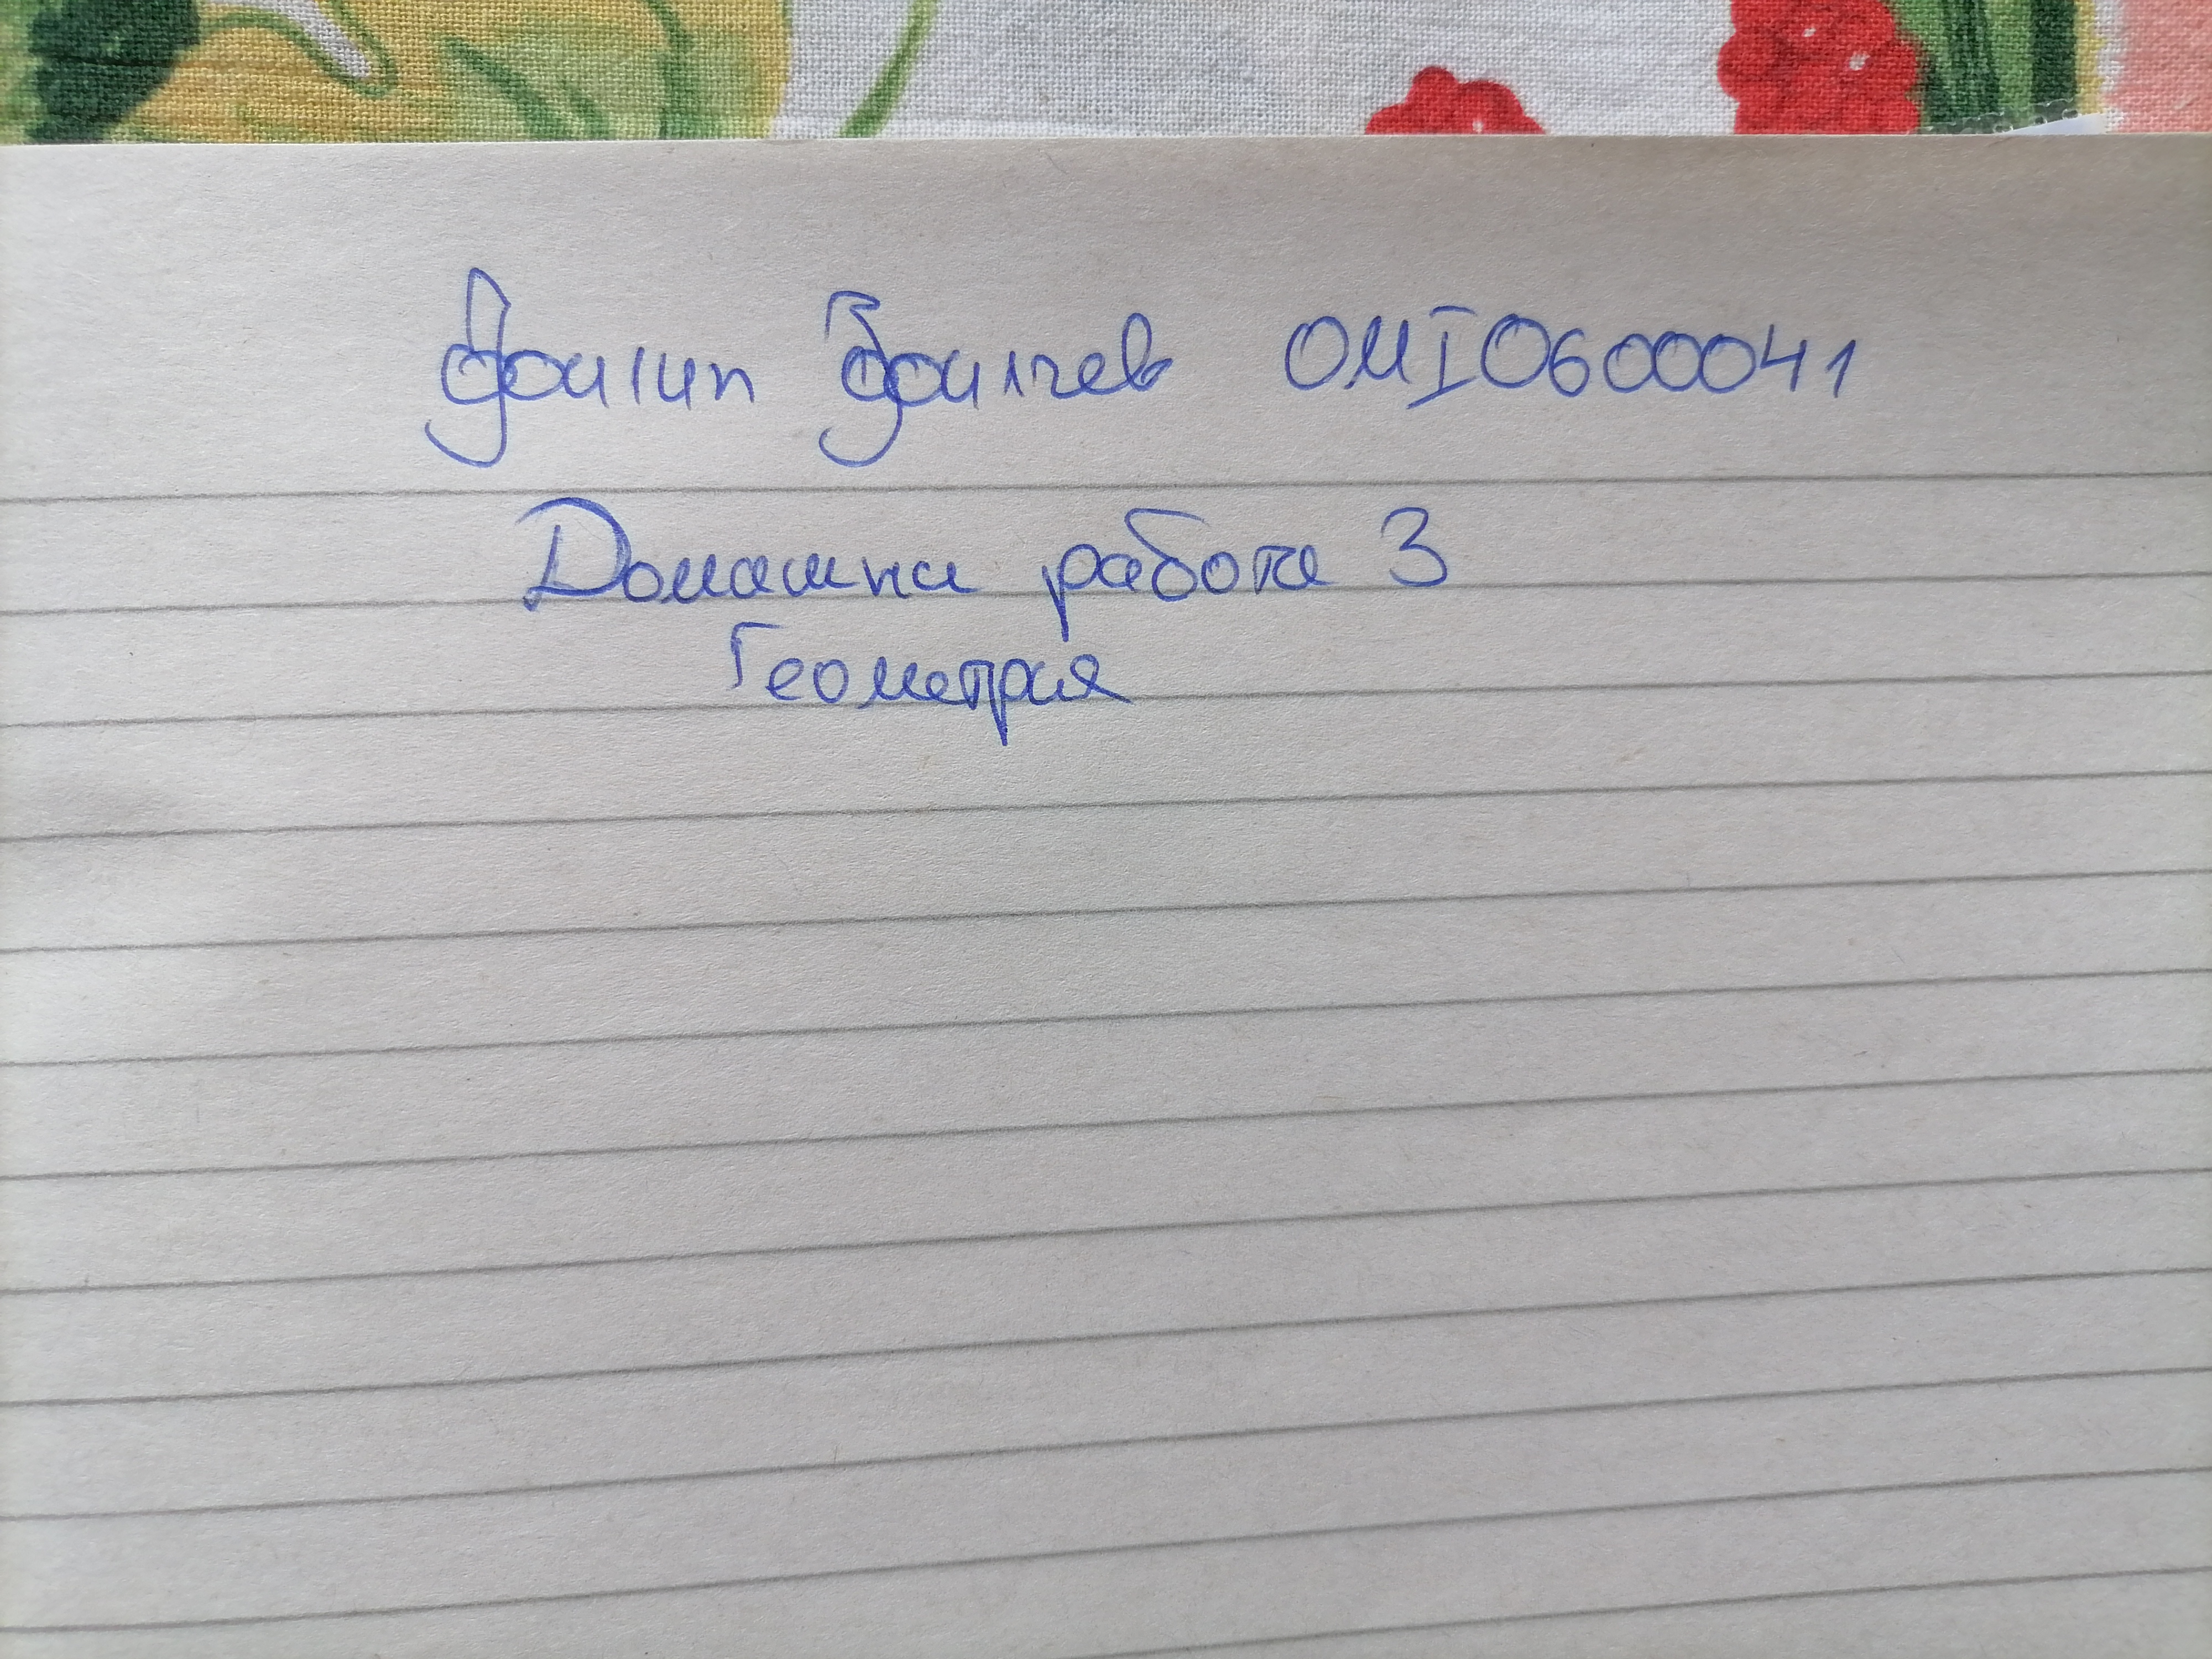 Филип Филчев 0MI0600041
Домашна работа 3
Геометрия